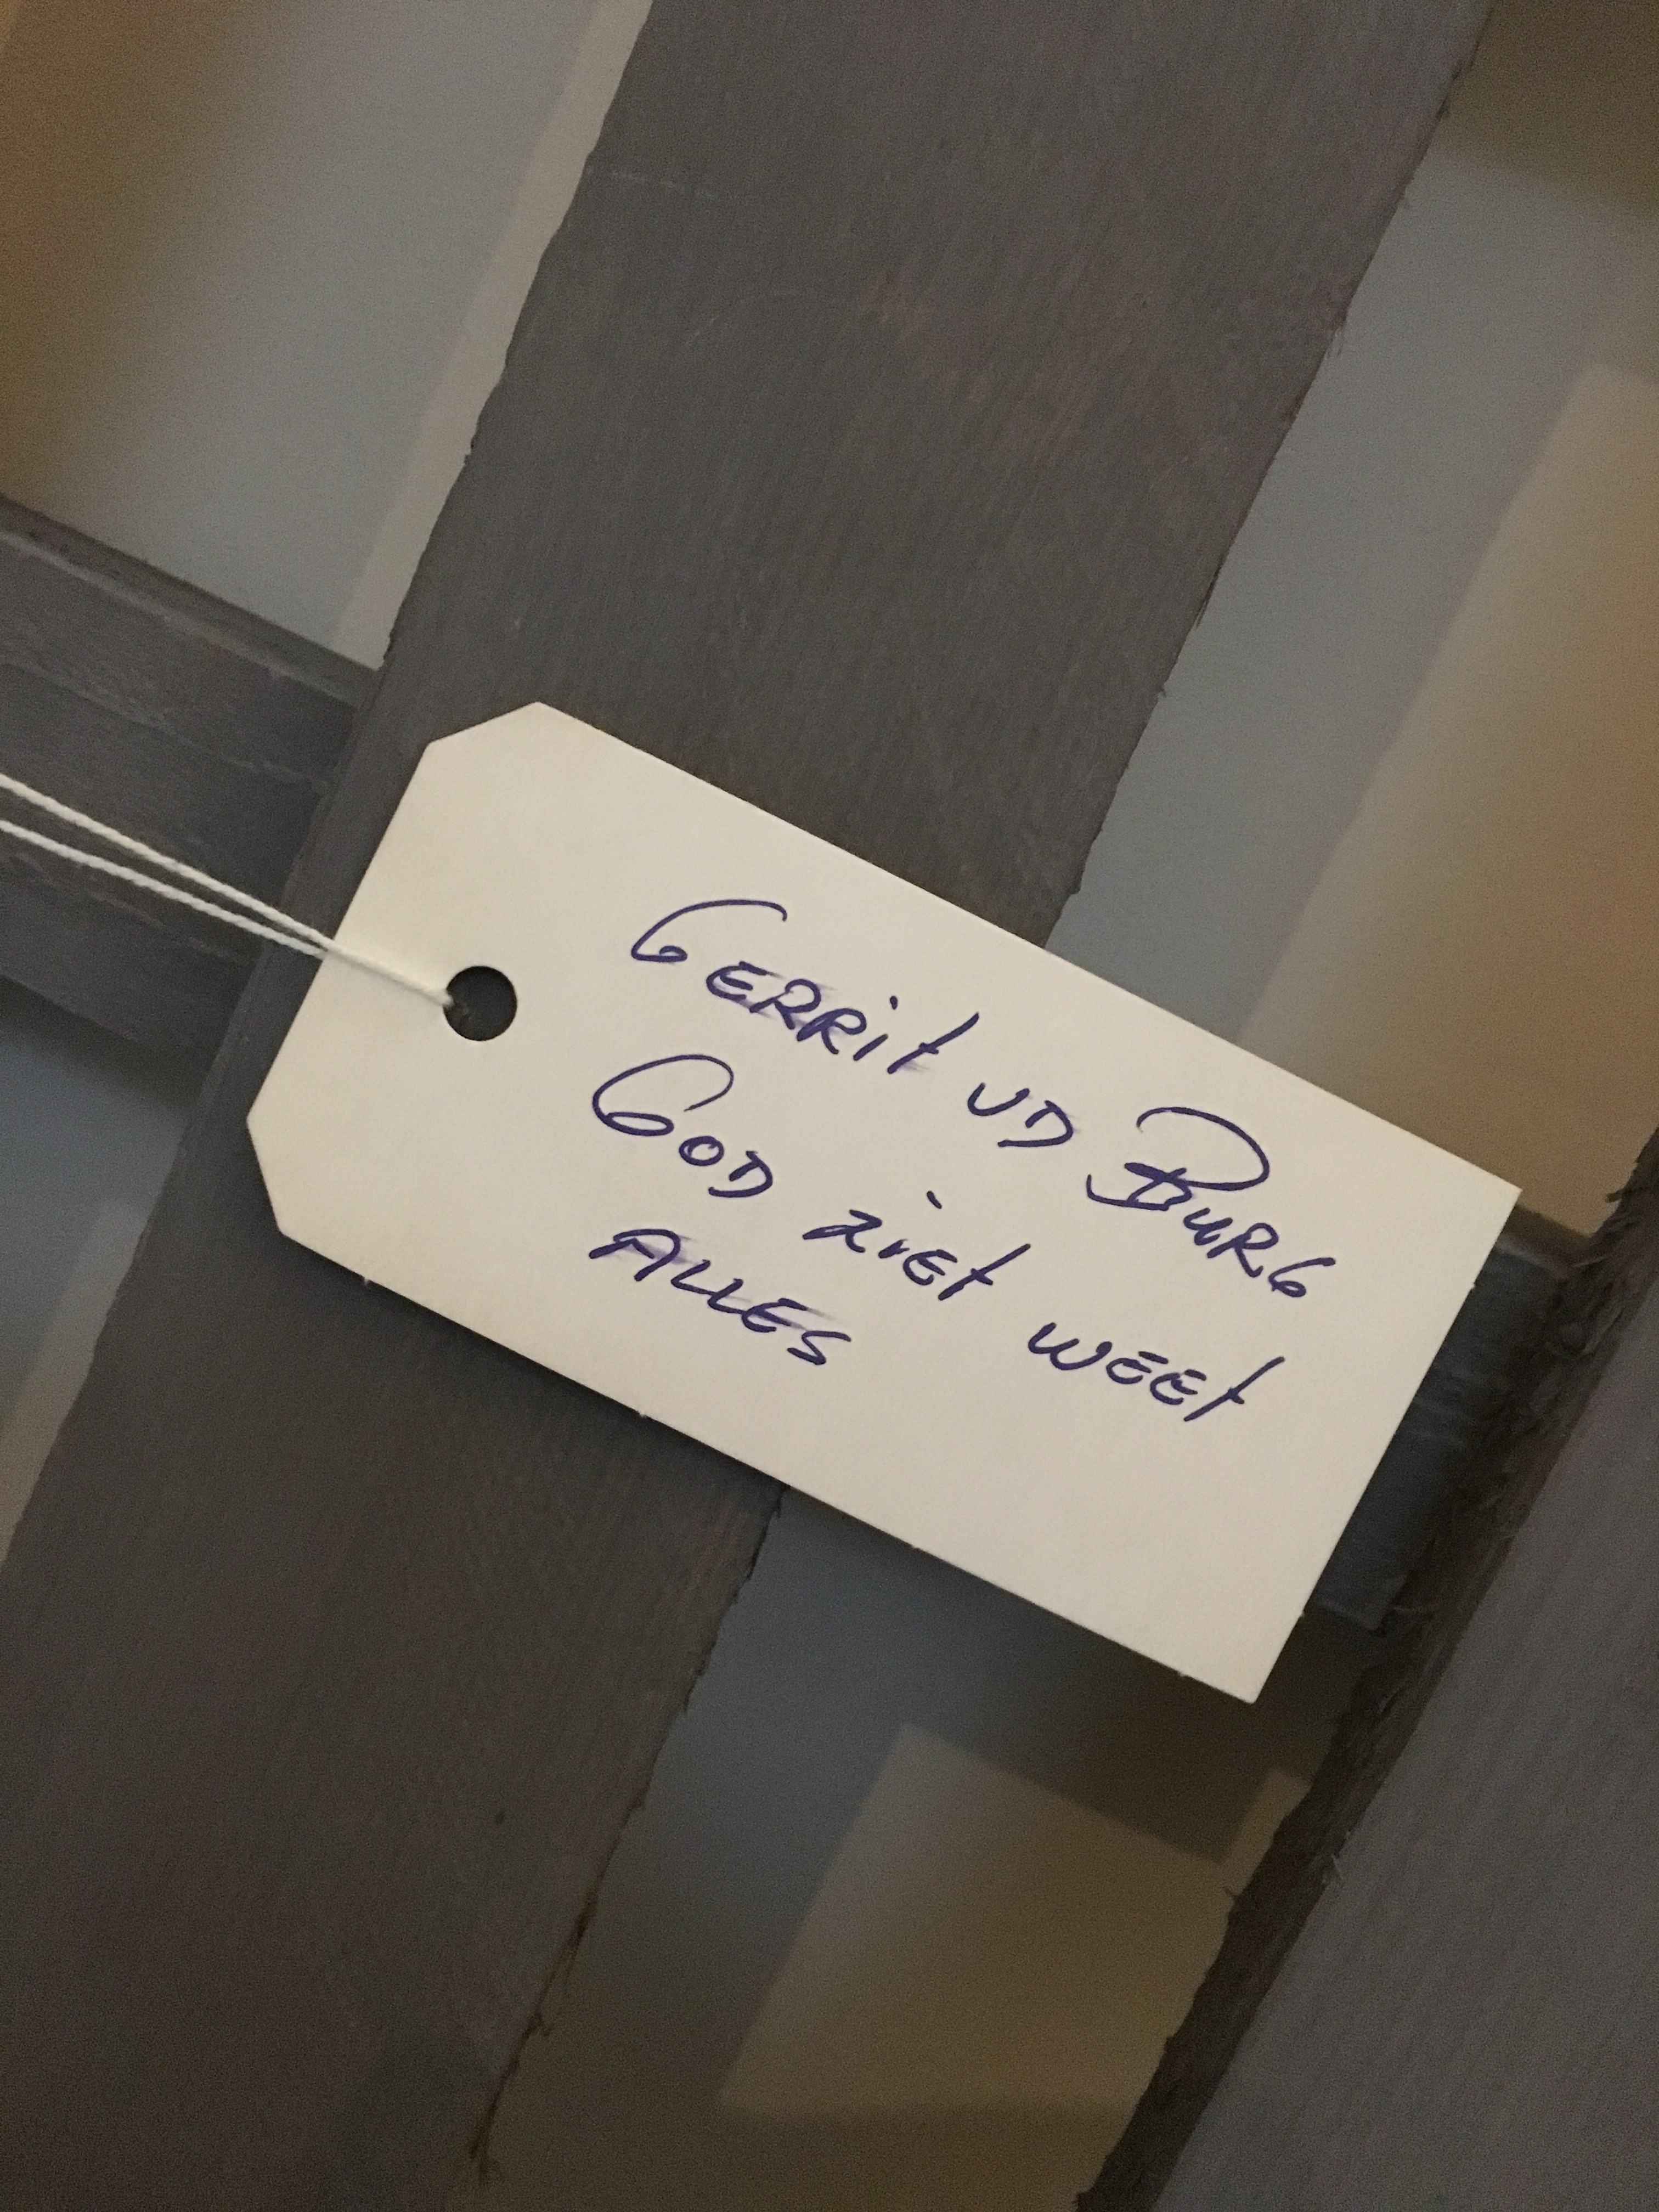 GERRit vD BURG
GOD ziEt wEEt
ALLES